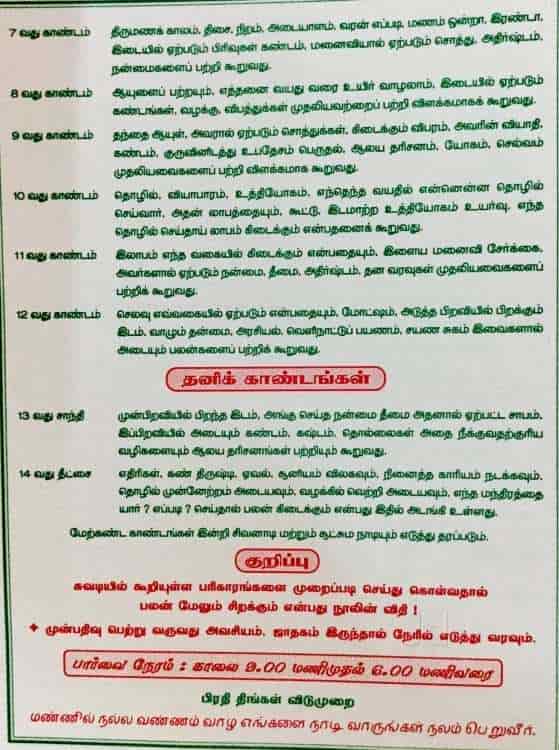 7 வது காண்டம் திருமணக் காலம், திசை, நிறம், அடையாளம், வரன் எப்படி, மணம் ஒன்றா, இரண்டா,
இடையில் ஏற்படும் பிரிவுகள் கண்டம், மனைவியால் ஏற்படும் சொத்து, அதிர்ஷ்டம்,
நன்மைகளைப் பற்றி கூறுவது.
8 வது காண்டம் ஆயுளைப் பற்றியும், எத்தனை வயது வரை உயிர் வாழலாம், இடையில் ஏற்படும்
கண்டங்கள், வழக்கு, விபத்துக்கள் முதலியவற்றைப் பற்றி விளக்கமாகக் கூறுவது.
9 வது காண்டம் தந்தை ஆயுள், அவரால் ஏற்படும் சொத்துக்கள், கிடைக்கும் விபரம், அவரின் வியாதி,
கண்டம், குருவினிடத்து உபதேசம் பெறுதல், ஆலய தரிசனம், யோகம், செல்வம்
முதலியவைகளைப் பற்றி விளக்கமாக கூறுவது.
10 வது காண்டம் தொழில், வியாபாரம், உத்தியோகம், எந்தெந்த வயதில் என்னென்ன தொழில்
செய்வார், அதன் லாபத்தையும், கூட்டு, இடமாற்ற உத்தியோகம் உயர்வு, எந்த
தொழில் செய்தாய் லாபம் கிடைக்கும் என்பதனைக் கூறுவது.
11 வது காண்டம் இலாபம் எந்த வகையில் கிடைக்கும் என்பதையும், இளைய மனைவி சேர்க்கை,
அவர்களால் ஏற்படும் நன்மை, தீமை, அதிர்ஷ்டம், தன வரவுகள் முதலியவைகளைப்
பற்றிக் கூறுவது.
12 வது காண்டம் செலவு எவ்வகையில் ஏற்படும் என்பதையும், மோட்ஷம், அடுத்த பிறவியில் பிறக்கும்
இடம், வாழும் தன்மை, அரசியல், வெளிநாட்டுப் பயணம், சயண சுகம் இவைகளால்
அடையும் பலன்களைப் பற்றிக் கூறுவது.
தனிக் காண்டங்கள்
13 வது சாந்தி முன்பிறவியில் பிறந்த இடம், அங்கு செய்த நன்மை தீமை அதனால் ஏற்பட்ட சாபம்,
இப்பிறவியில் அடையும் கண்டம், கஷ்டம், தொல்லைகள் அதை நீக்குவதற்குரிய
வழிகளையும் ஆலய தரிசனாங்கள் பற்றியும் கூறுவது.
14 வது தீட்சை எதிரிகள், கண் திருஷ்டி, ஏவல், சூனியம் விலகவும், நினைத்த காரியம் நடக்கவும்,
தொழில் முன்னேற்றம் அடையவும், வழக்கில் வெற்றி அடையவும், எந்த மந்திரத்தை
யார் ? எப்படி ? செய்தால் பலன் கிடைக்கும் என்பது இதில் அடங்கி உள்ளது.
மேற்கண்ட காண்டங்கள் இன்றி சிவனாடி மற்றும் சூட்சும நாடியும் எடுத்து தரப்படும்.
குறிப்பு
சுவடியில் கூறியுள்ள பரிகாரங்களை முறைப்படி செய்து கொள்வதால்
பலன் மேலும் சிறக்கும் என்பது நூலின் விதி !
✦ முன்பதிவு பெற்று வருவது அவசியம். ஜாதகம் இருந்தால் நேரில் எடுத்து வரவும்.
பார்வை நேரம் : காலை 9.00 மணிமுதல் 6.00 மணிவரை
பிரதி திங்கள் விடுமுறை
மண்ணில் நல்ல வண்ணம் வாழ எங்களை நாடி வாருங்கள் நலம் பெறுவீர்.